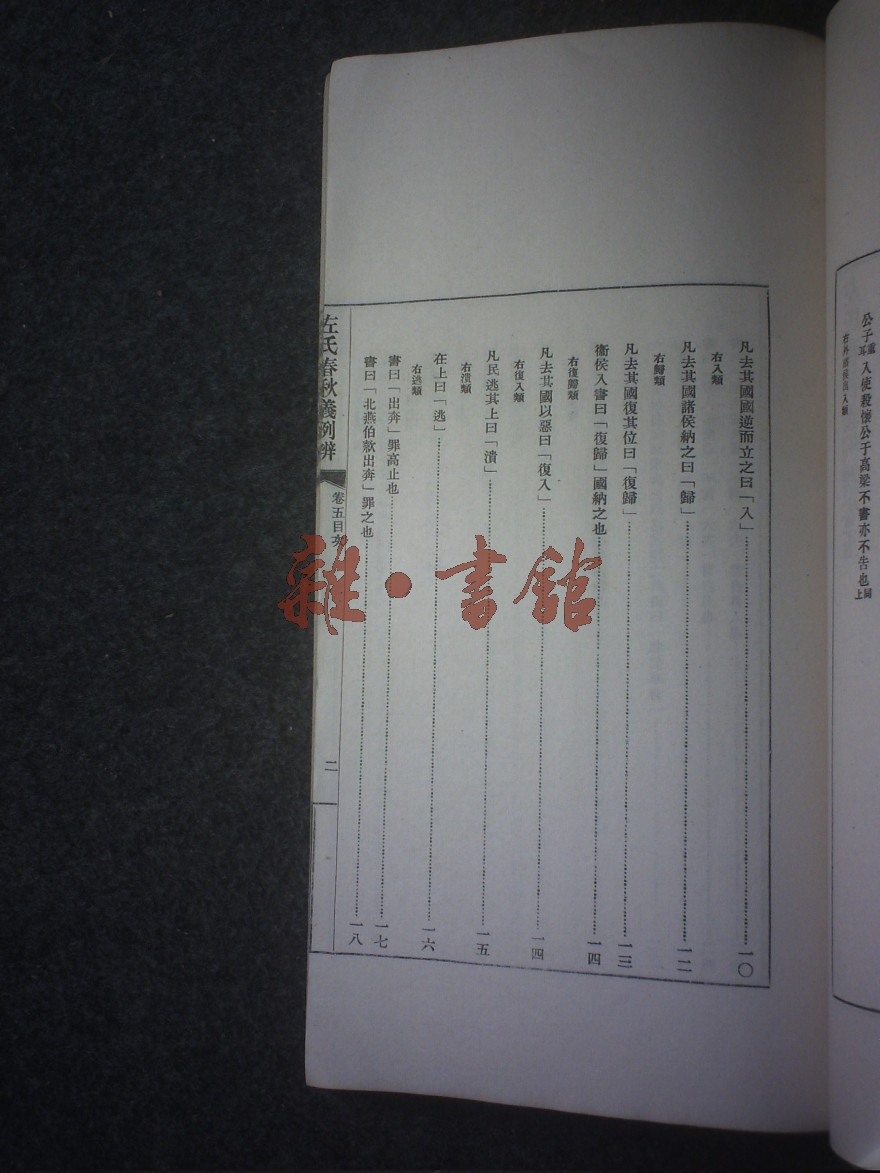 公子重耳入使殺懷公于高梁不書亦不告也同上
凡去其國國逆而立之曰「入」一〇
右入類
凡去其國諸侯納之曰「歸」一二
右歸類
凡去其國復其位曰「復歸」一三
衞侯入書曰「復歸」國納之也一四
右復歸類
凡去其國以惡曰「復入」一四
右復入類
凡民逃其上曰「潰」一五
右潰類
在上曰「逃」一六
右逃類
書曰「出奔」罪高止也一七
書曰「北燕伯款出奔」罪之也一八
左氏春秋義例辨
卷五目次
二
雜·書館